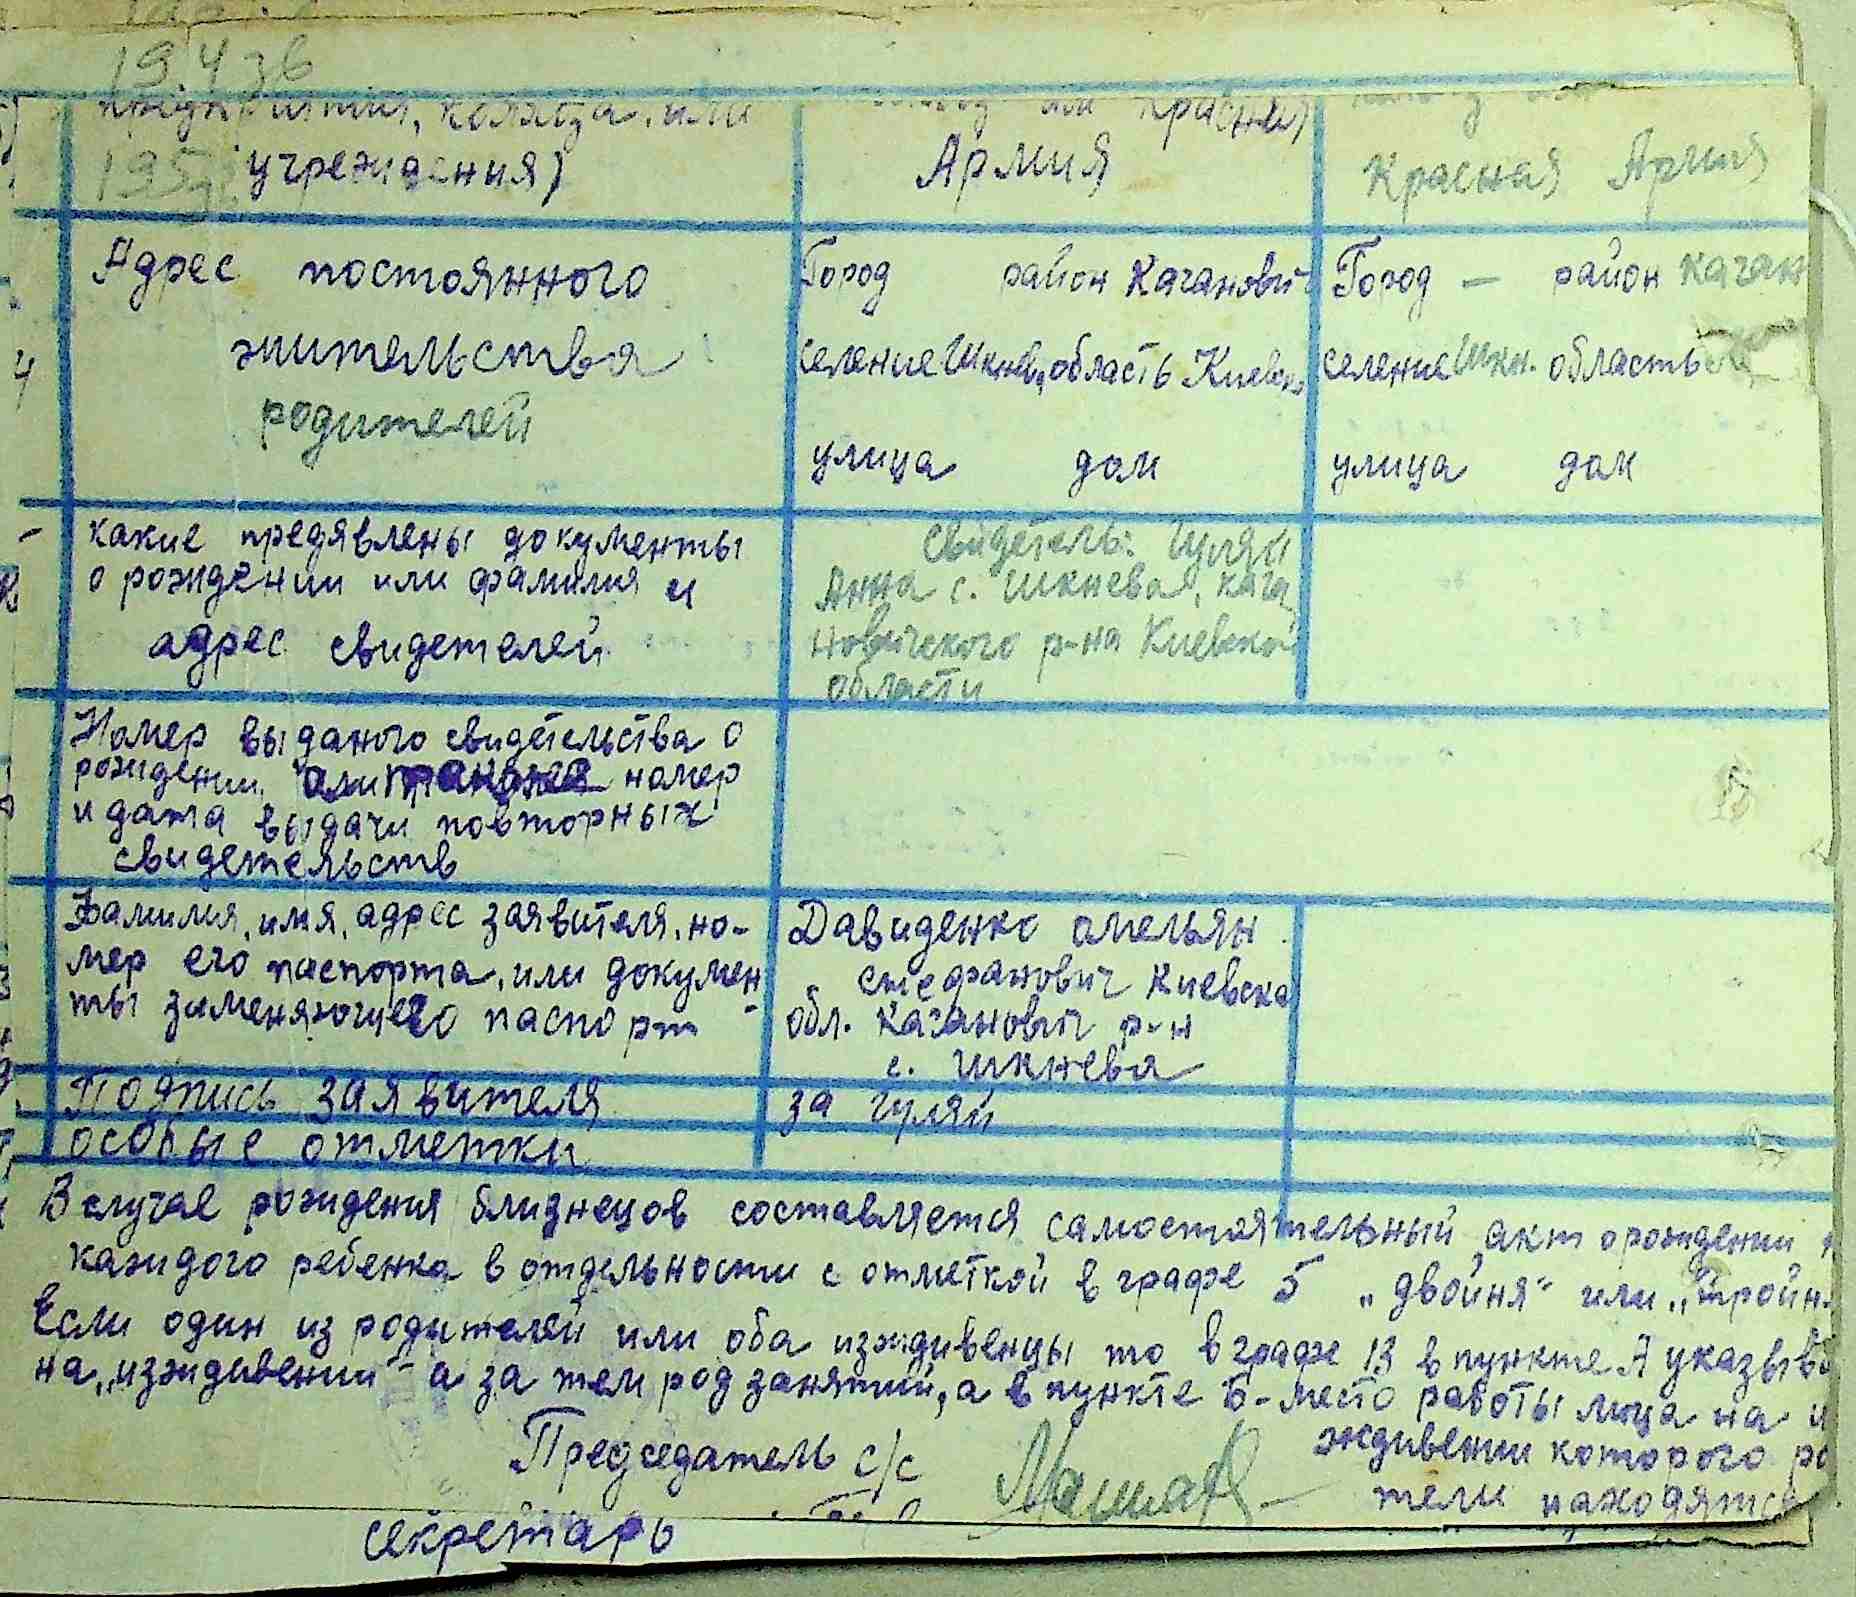 19 43в
предприятия, колхоза, или
учреждения)
или красная
Армия
Красная Армия
Адрес постоянного
жительства
родителей
Город район Кагановичи
селение Шкнева, область Киевска
улица дом
Город — район Каган
селение Шкн. область
улица дом
какие предявлены документы
о рождении или фамилия и
адрес свидетелей
Свидетель: Гуляй
Анна с. Шкнева, кага
новичского р-на Киевской
области
Номер выданого свидетельства о
рождении, номер
и дата выдачи повторных
свидетельств
Фамилия, имя, адрес заявителя, но-
мер его паспорта, или докумен
ты заменяющего паспорт
Давиденко омельян
стефанович Киевска
обл. Каганович р-н
с. Шкнева
Подпись заявителя
за Гуляй
особые отметки
В случае рождения близнецов составляется самостоятельный акт о рождении
каждого ребенка в отдельности с отметкой в графе 5 „двойня“ или „тройн
Если один из родителей или оба иждивенцы то в графе 13 в пункте А указыв
на „иждивении“ а за тем род занятий, а в пункте Б-место работы лица на и
ждивении которого ро
тели находятся
Председатель с/с
секретарь